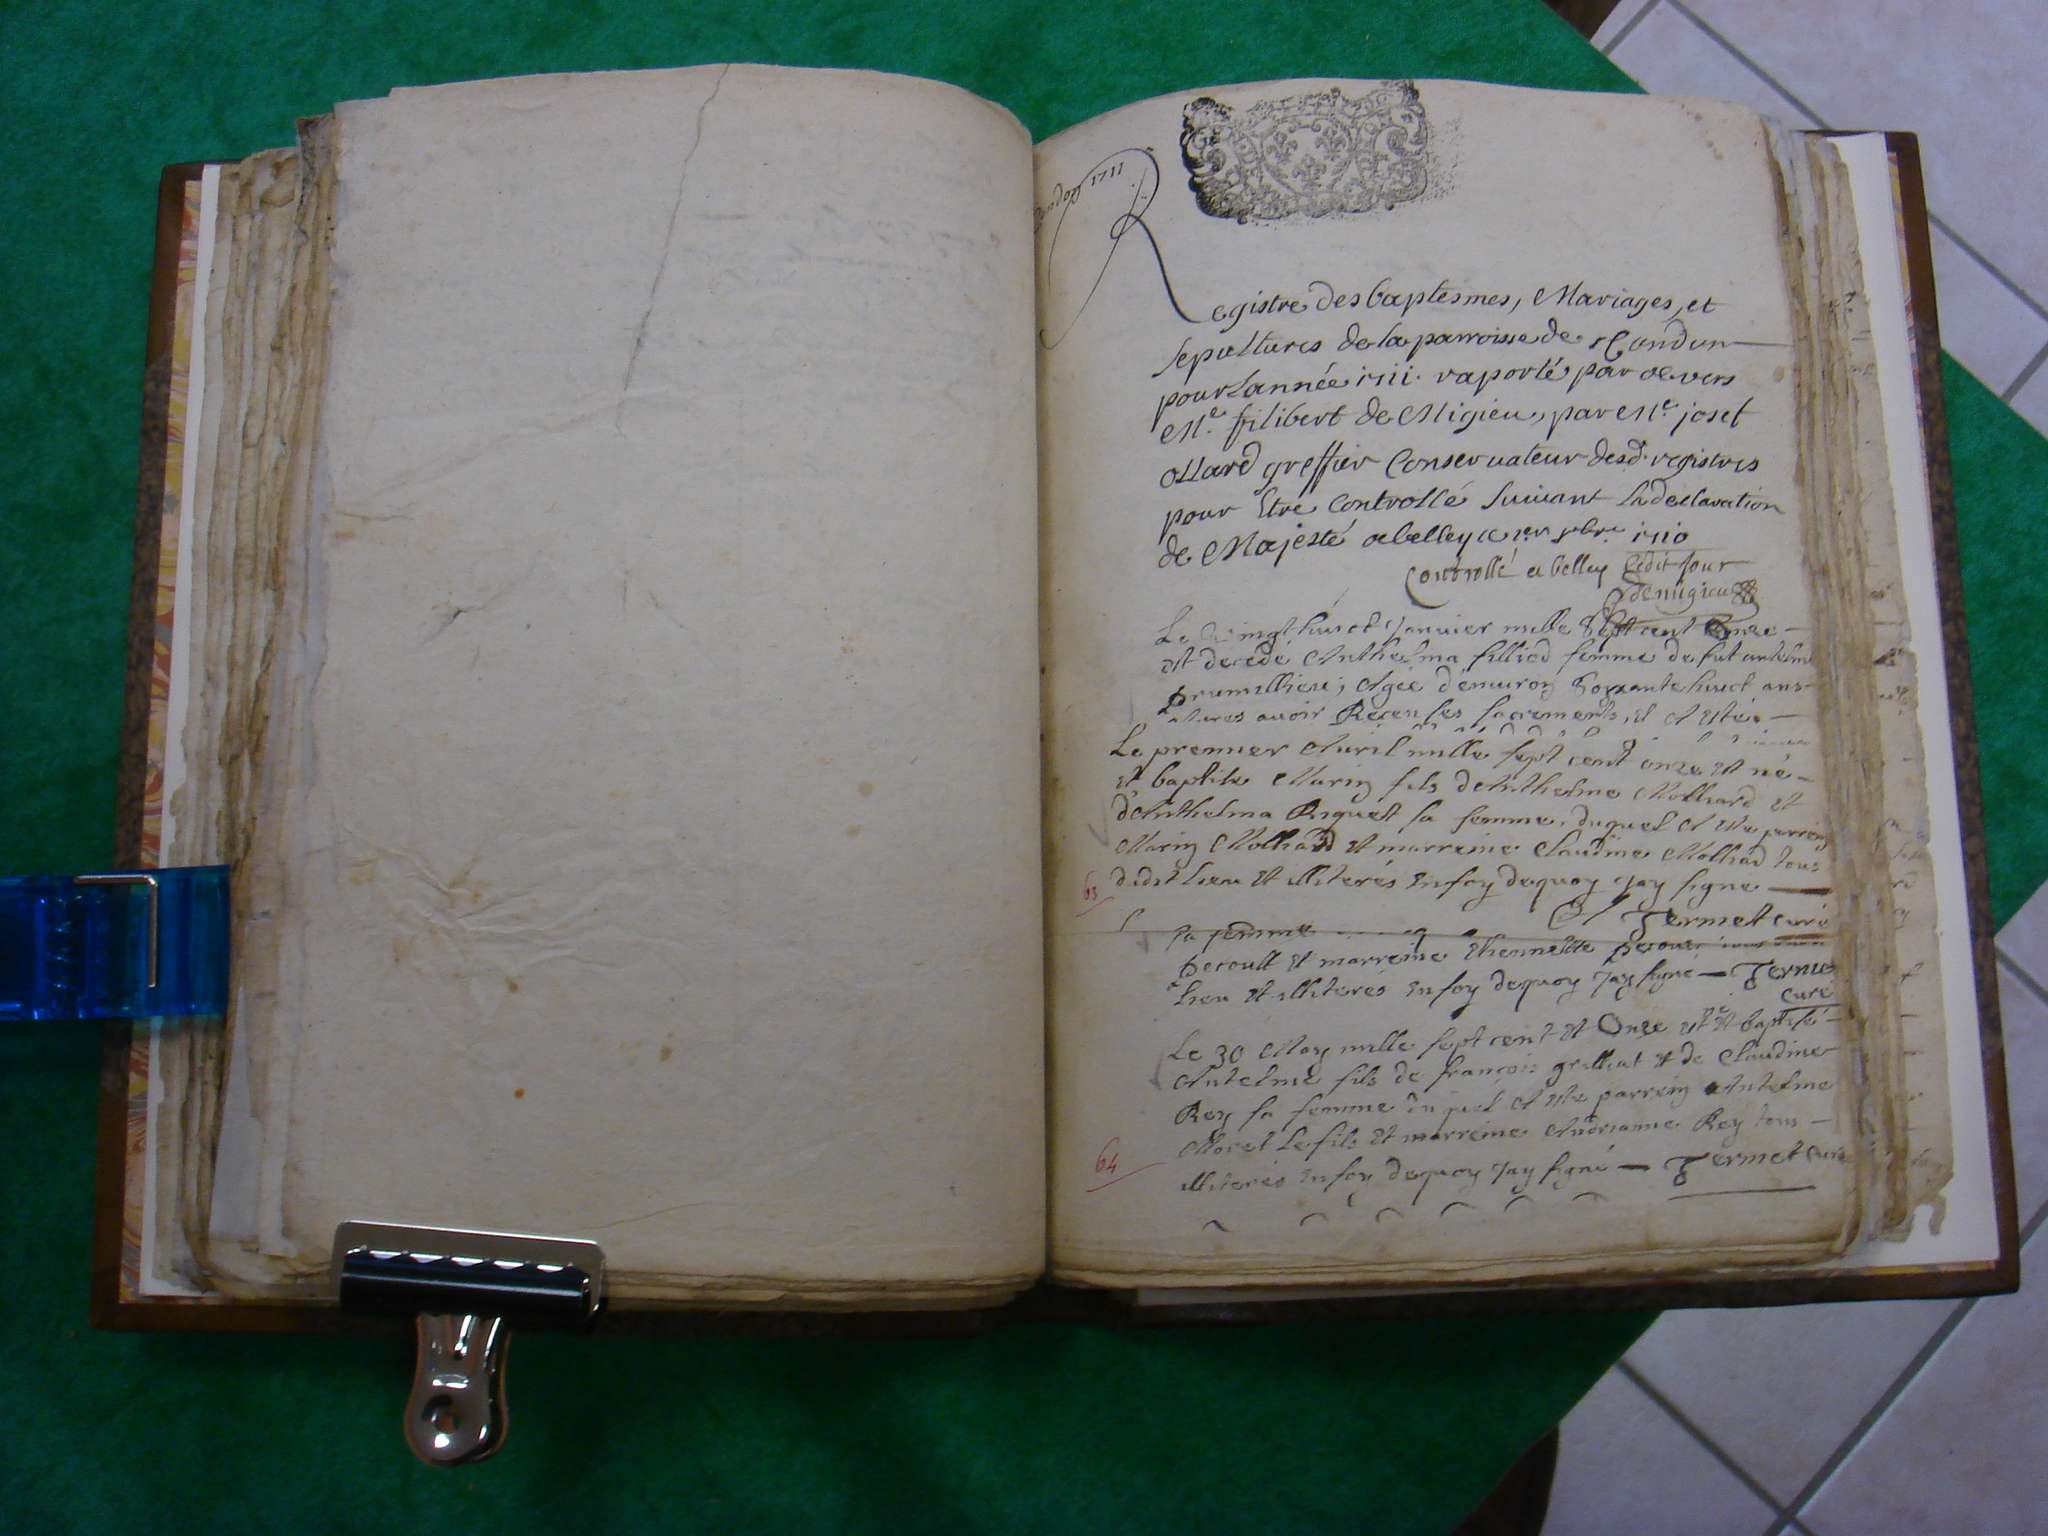 Condon 1711
Registre des baptesmes, Mariages, et
sepultures de la parroisse de Condon
pour Lannée 1711. raporté par devers
Me. filibert de Migieu, par Me. josef
ollard greffier Conservateur desd. registres
pour Etre Controllé suivant la declaration
de Majesté a belley ce 1710
Controllé a belley Ledit jour
demigieu
Le Vingt huict Janvier mille Sept cent Onze
est decedé Anthelma filliod femme de fut antelme
Brumillieu; Agée d'enuiron Soixante huict ans
avoir Reçeu les sacrements, et A esté
Le premier Auril mille sept cent onze est né
et baptise Marin fils deAnthelme Molliard et
d'Anthelma Riquest sa femme. duquel A este parrein
Marin Molliard et marreine Claudine Molliard tous
dudit lieu et illiterés en foy dequoy jay signe
63
Termet curé
sa femme
Decoult et marreine Ethiennette Decoult
lieu et illiterés en foy dequoy jay signé — Termet
curé
Le 30 May mille sept cent et Onze est né et baptisé
Antelme fils de françois grilliat et de Claudine
Rey sa femme duquel A este parrein Antelme
Moret Le fils et marreine Andrianne Rey tous
64
illiterés en foy dequoy jay signé — Termet curé